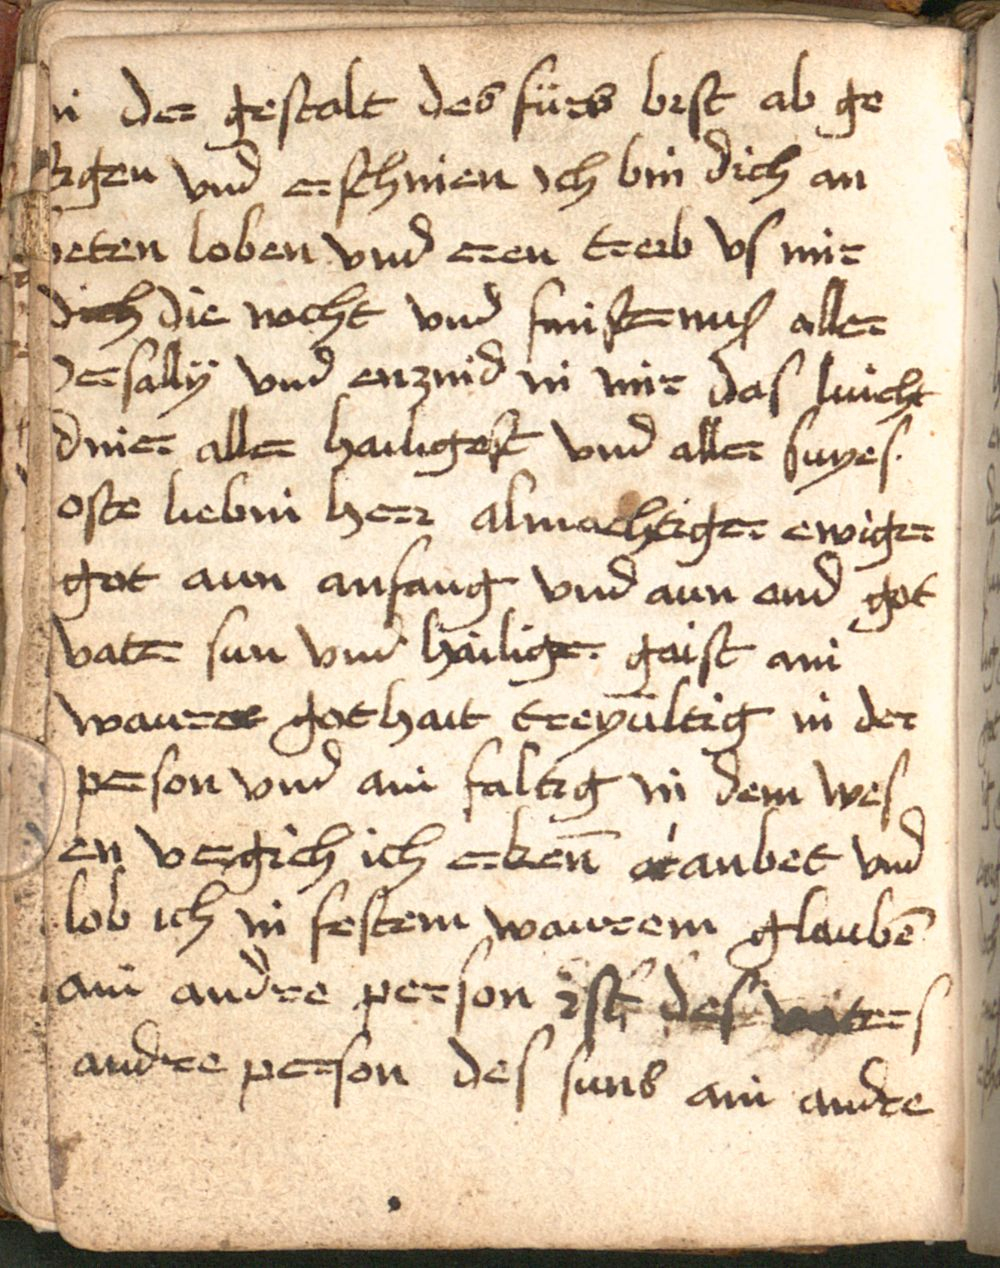 in der gestalt des fürs bist ab ge
stigen vnd erschinen ich bin dich an
beten loben vnd eren treib vs mir
dich die nacht vnd finsternus aller
der sally vnd enzind in mir das luicht
diner aller hailigest vnd aller suyes
oste liebin herr almachtiger ewiger
got aun anfang vnd aun end got
vater sun vnd hailiger gaist ain
waurer gothait treyualtig in der
person vnd ain faltig in dem wes
en vergich ich erken anbet vnd
lob ich in festem waurem glauben
ain andre person ist des vaters
andre person des suns ain andre